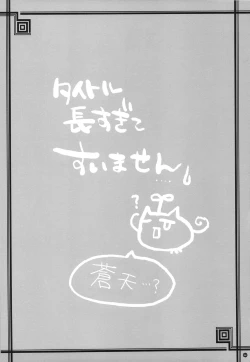 タイトル
長すぎて
すいません。
....
?
蒼天…?